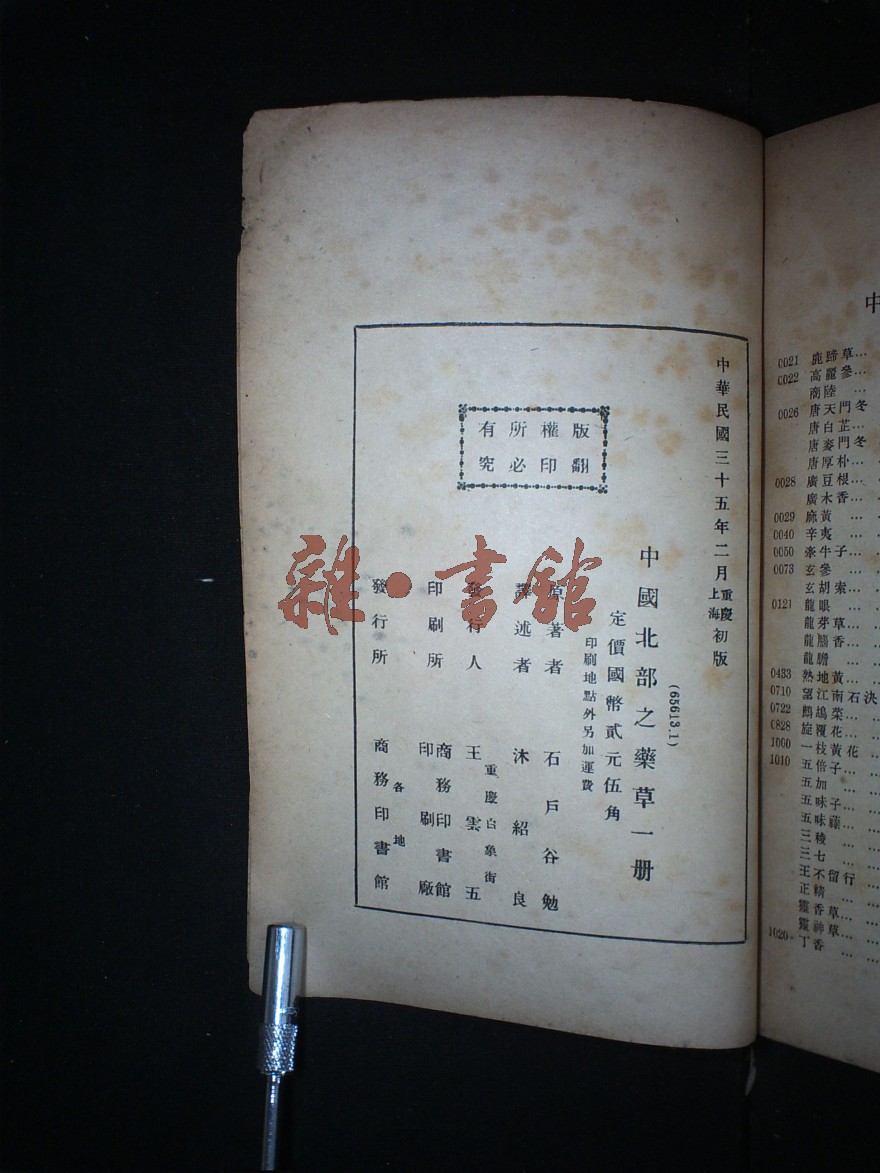 中華民國三十五年二月重慶上海初版
(65613.1)
中國北部之藥草一册
定價國幣貳元伍角
印刷地點外另加運費
版權所有
翻印必究
原著者 石戶谷勉
譯述者 沐紹良
發行人 王雲五
重慶白象街
印刷所 商務印書館印刷廠
發行所 各地商務印書館
雜·書館
中
0021 鹿蹄草…
0022 高麗參…
商陸 …
0026 唐天門冬
唐白芷…
唐麥門冬
唐厚朴…
0028 廣豆根…
廣木香…
0029 麻黃 …
0040 辛夷 …
0050 牽牛子…
0073 玄參 …
玄胡索…
0121 龍眼 …
龍芽草…
龍腦香…
龍膽 …
0433 熟地黃…
0710 望江南石決
0722 鷓鴣菜…
0828 旋覆花…
1000 一枝黃花
1010 五倍子…
五加 …
五味子…
五味藤…
三稜 …
三七 …
王不留行 …
正精 …
靈香草…
靈神草…
1020 丁香 …